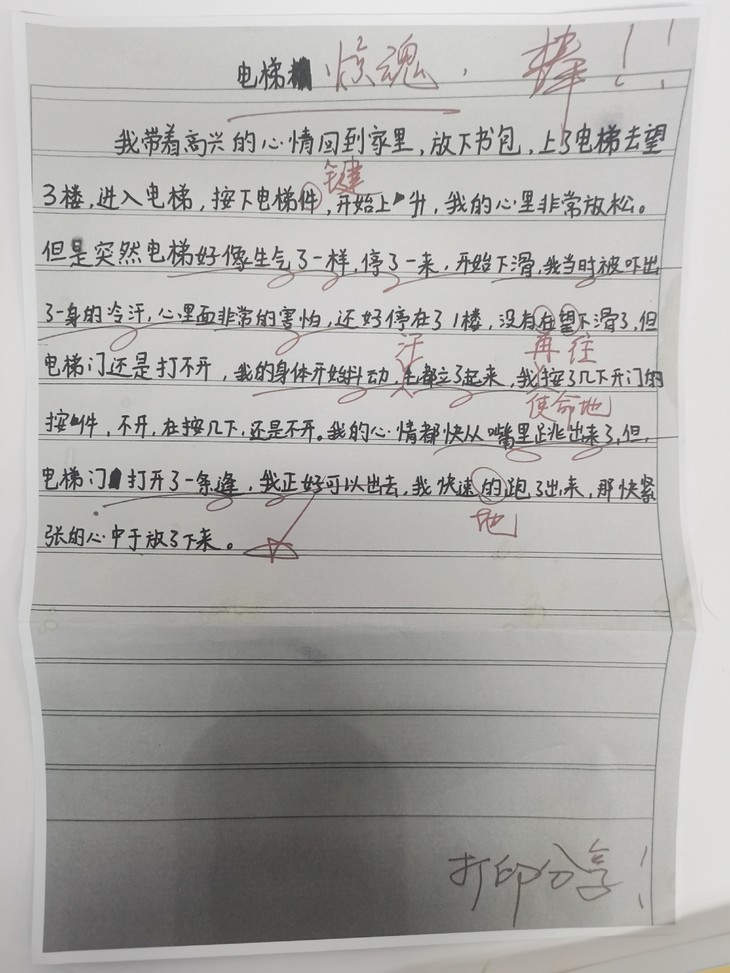 电梯惊魂. 棒!!
我带着高兴的心情回到家里,放下书包,上了电梯去望
键
3楼,进入电梯,按下电梯件,开始上升,我的心里非常放松。
但是突然电梯好像生气了一样,停了一来,开始下滑,我当时被吓出
了一身的冷汗,心里面非常的害怕,还好停在了1楼,没有在望下滑了,但
汗 再往
电梯门还是打不开,我的身体开始抖动,毛都立了起来,我按了几下开门的
使命地
按件,不开,在按几下,还是不开。我的心情都快从嘴里跳出来了,但,
电梯门打开了一条逢,我正好可以出去,我快速的跑了出来,那快紧
地
张的心中于放了下来。
打印分享!